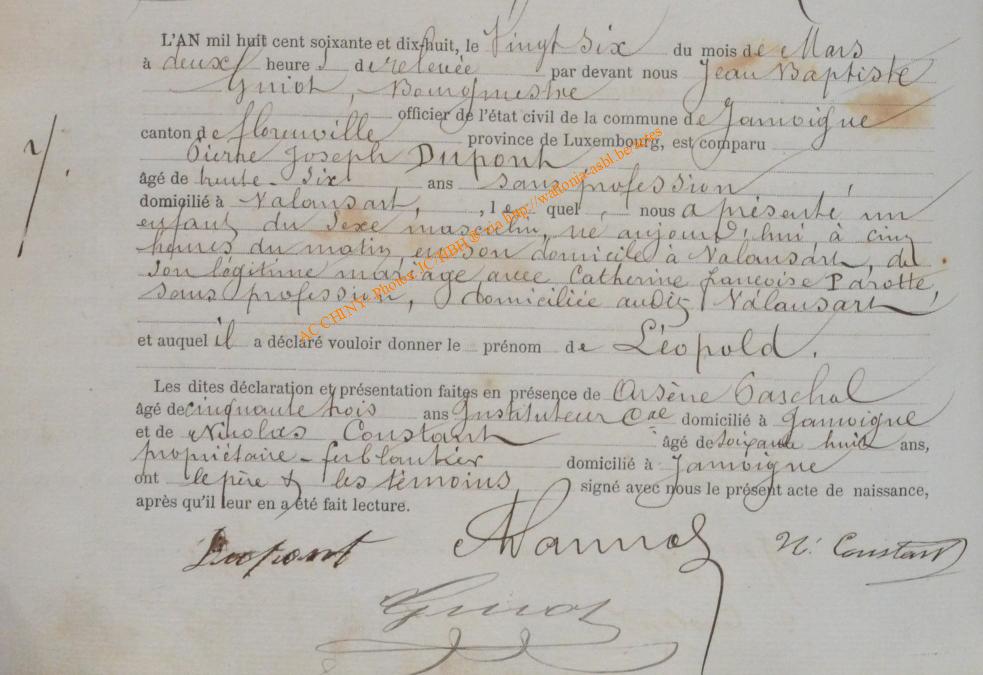 L'AN mil huit cent soixante et dix-huit, le Vingt Six du mois de Mars
à deux heures de relevée par devant nous Jean Baptiste
Guiot, Bourgmestre
officier de l'état civil de la commune de Jamoigne
canton de florenville province de Luxembourg, est comparu
Pierre Joseph Dupont
âgé de trente-six ans sans profession
domicilié à Valansart, , le quel, nous a présenté un
enfant du Sexe masculin, né aujourd'hui, à cinq
heures du matin, en son domicile à Valansart, de
son légitime mariage avec Catherine françoise Parotte,
sans profession, domiciliée audit Valansart
et auquel il a déclaré vouloir donner le prénom de Léopold.
Les dites déclaration et présentation faites en présence de Arsène
âgé de cinquante trois ans Instituteur domicilié à Jamoigne
et de Nicolas Constant âgé de soixante huit ans,
propriétaire - ferblantier domicilié à Jamoigne
ont le père & les témoins signé avec nous le présent acte de naissance,
après qu'il leur en a été fait lecture.
Dupont N. Constant
Guiot
AC CHINY - Photos JC/HBH @ via http://waltonia-asbl.be/arles